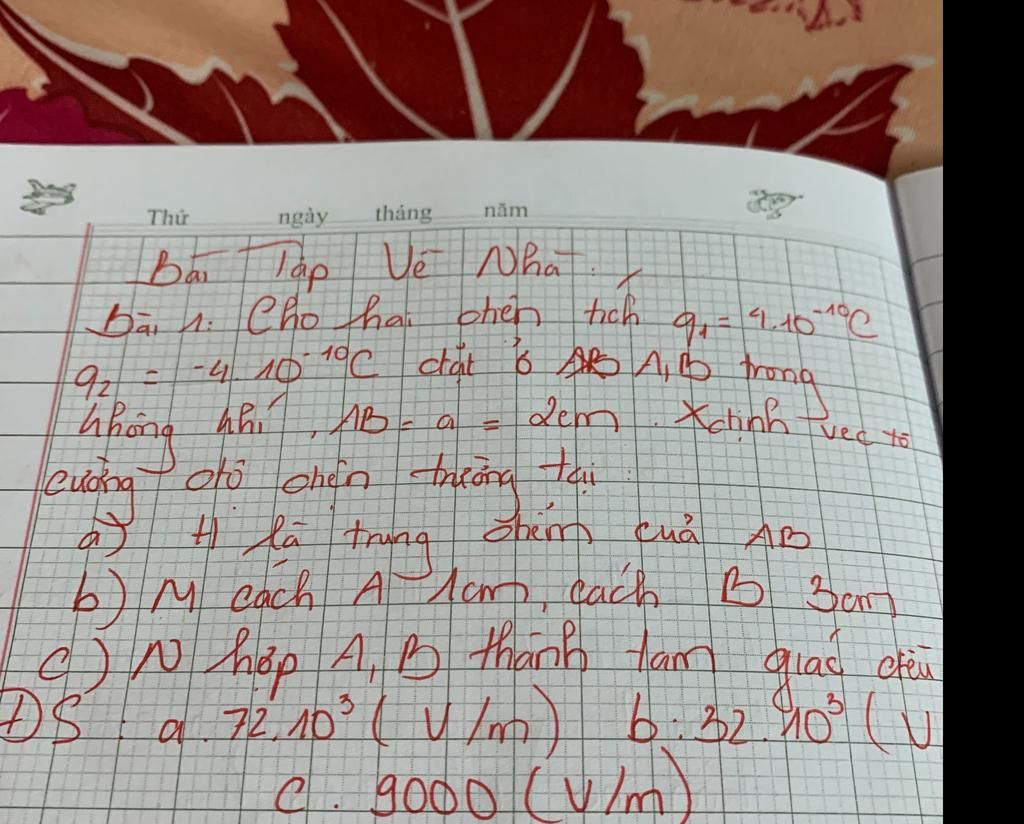 Thứ ngày tháng năm
Bài Tập Về Nhà.
Bài 1: Cho hai điện tích q₁ = 4.10⁻¹⁰C
q₂ = -4.10⁻¹⁰C đặt ở A,B trong
không khí, AB = a = 2cm. Xđịnh vec tơ
cường độ điện trường tại:
a) H là trung điểm của AB
b) M cách A 1cm, cách B 3cm
c) N hợp A, B thành tam giác đều
ĐS: a. 72.10³ (V/m) b: 32.10³ (V
c. 9000 (V/m)